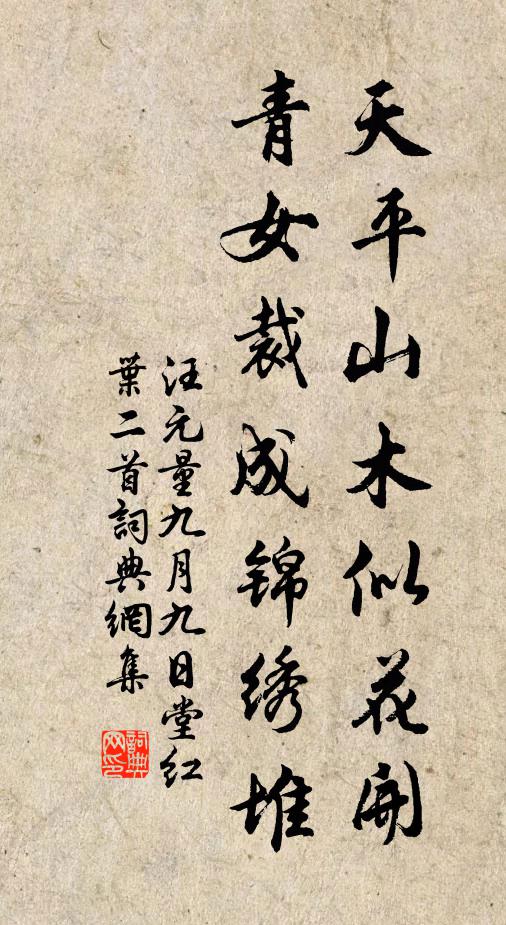 天平山木似花开
青女裁成锦绣堆
汪元量九月九日堂红
葉二首詞典網集
詞典网印